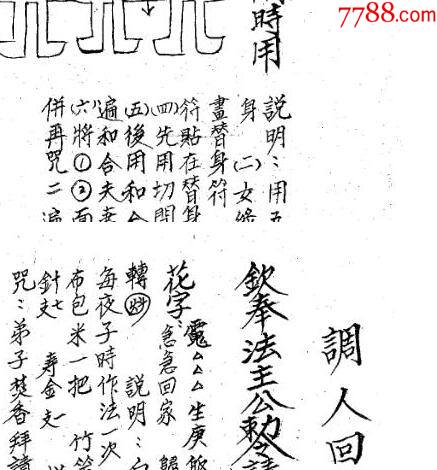 7788.com
時用
説明：用五
身 (二)女緣
畫替身符
符貼在替身
(四)先用切開
(五)後用和合
遍和合夫妻
(六)將①②面
併再咒二遍
調人回
欽奉法主公勅令
花字：急急回家
魂△△△生庚
轉 説明：
每夜子時作法一次
布包米一把 竹
針七支 壽金一
咒：弟子焚香拜請